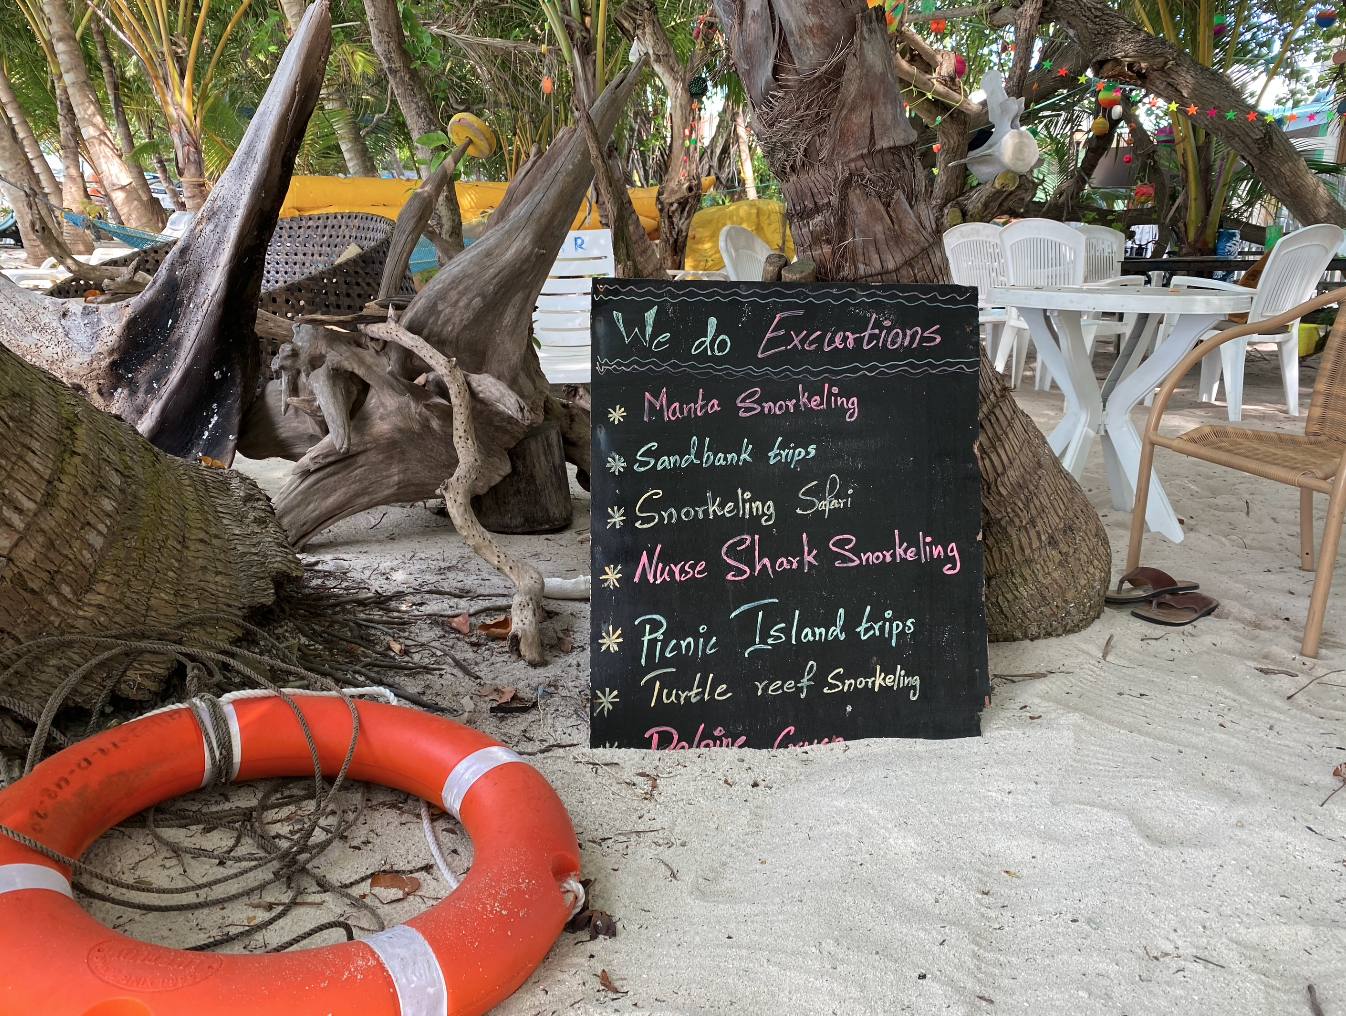 R
We do Excurtions
* Manta Snorkeling
* Sandbank trips
* Snorkeling Safari
* Nurse Shark Snorkeling
* Picnic Island trips
* Turtle reef Snorkeling